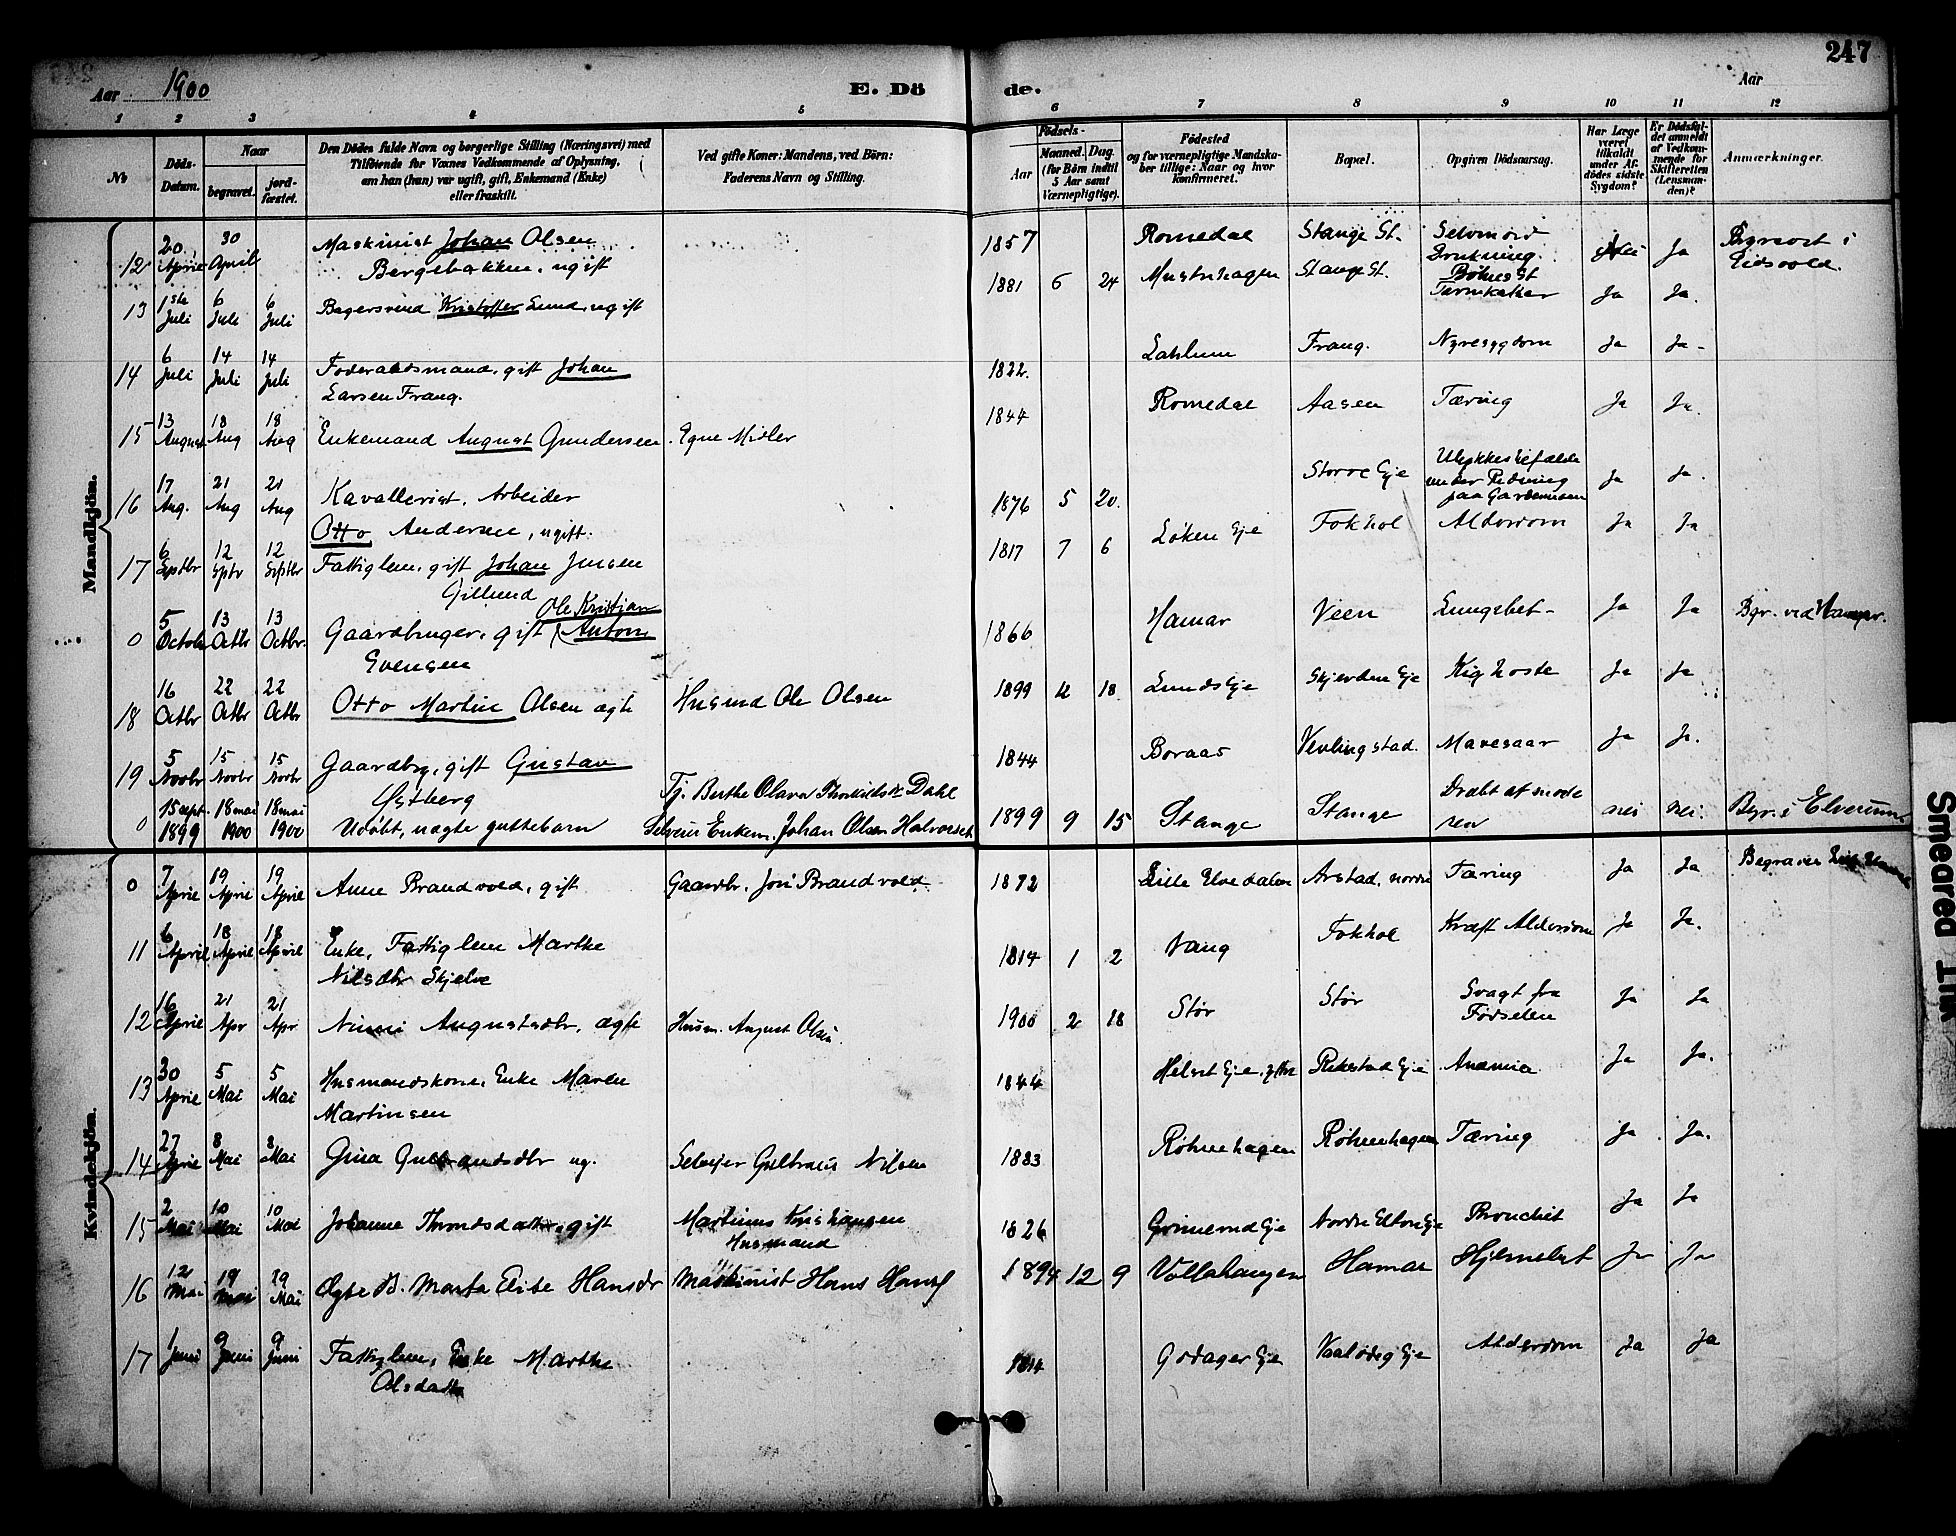 247
Aar 1900
E. Dö de.
Aar
1 2 3 4 5 6 7 8 9 10 11 12
No
Döds-Datum.
Naar
begravet.
jord-fæstet.
Den Dödes fulde Navn og borgerlige Stilling (Næringsvei) med
Tilföiende for Voxnes Vedkommende af Oplysning,
om han (hun) var ugift, gift, Enkemand (Enke)
eller fraskilt.
Ved gifte Koner: Mandens, ved Börn:
Faderens Navn og Stilling.
Födsels-
Aar
Maaned. Dag.
(for Börn indtil
5 Aar samt
Værnepligtige).
Födested
og for værnepligtige Mandska-
ber tillige: Naar og hvor
konfirmeret.
Bopæl.
Opgiven Dödsaarsag.
Har Læge
været
tilkaldt
under Af-
dödes sidste
Sygdom?
Er Dödsfal-
det anmeldt
af Vedkom-
mende for
Skifteretten
(Lensman-
den)?
Anmærkninger.
Mandkjön.
12 20 April 30 April Maskinist Johan Olsen Bergsbakken, ugift 1857 Romedal Stange St. Selvmord Drukning. Nei Ja Begravet i Eidsvold.
13 1ste Juli 6 Juli 6 Juli Bagersvend Kristoffer Lund, ugift 1881 6 24 Stange St. Ja Ja.
14 6 Juli 14 Juli 14 Juli Föderaadsmand, gift Johan Larsen Frang. 1822. Frang. Nyresygdom Ja Ja
15 13 August 18 Aug 18 Aug Enkemand August Gundersen. Egne Midler 1844 Romedal Aasen Tæring Ja Ja.
16 17 Aug. 21 Aug 21 Aug Kavallerist, Arbeider Otto Andersen, ugift. 1876 5 20. Eje Ulykkestilfælde under Ridning paa Gardermoen Ja Ja.
17 6 Septbr 12 Sptbr 12 Septbr Fattiglem, gift Johan Jensen Gillund 1817 7 6 Løken Eje Fokhol Alderdom Ja Ja
0 5 October 13 Octbr 13 Octbr. Gaardbruger, gift Ole Kristian Anton Evensen 1866 Hamar Veen Lungebet- Ja Ja Bgr. ved Hamar.
18 16 Octbr 22 Octbr 22 Octbr Otto Martin Olsen ægte Husmd Ole Olsen 1899 18 Lunds Eje Skjerden Eje Kighoste Ja Ja
19 5 Novbr 15 Novbr 15 Novbr Gaardbrg, gift Gustav Hytberg 1844 Boraas Vevlingstad. Mavesaar Ja Ja.
0 15 sept. 1899 18 mai 1900 18 mai 1900 Udöbt, uægte guttebarn Tj. Berthe Olava Dahl Selveier Enkem. Johan Olsen 1899 9 15 Stange Stange Dræbt af moderen nei nei. Bgr. i Elverum
Kvindekjön.
0 7 April 19 April 19 April Anne Brandvold, gift Gaardbr. Jon Brandvold 1872 Lille Elvedalen Arstad, nordre Tæring Ja Ja
11 6 April 18 April 18 April Enke, Fattiglem Marthe Nilsdtr Skjelve 1814 1 2 Vang Fokhol Kræft Alderdom Ja Ja.
12 16 April 21 Apr 21 Apr Augustsdtr. ægte Husm. August Olsen 1900 2 18 Stør Stør Svagt fra Födselen Ja Ja
13 30 April 5 Mai 5 Mai Husmandskone, Enke Maren Martinsen 1844 Eje Anæmia Ja Ja.
14 27 April 8 Mai 8 Mai Gina Gulbrandsdtr ug. Selvejer Nilsen 1883 Röhnehagen Röhnehagen Tæring Ja Ja.
15 2 Mai 10 Mai 10 Mai Johanne gift Martinus Kristiansen Husmand 1826 Grimerud Eje Nordre Bronchit Ja Ja
16 12 Mai 19 Mai 19 Mai Ægte B. Marta Elise Hansdr Maskinist Hans 1894 12 9 Hamar Hjernebet Ja Ja
17 1 Juni 9 Juni 9 Juni Fattiglem, Enke Marthe Olsdatter 1814 Godager Eje Eje Alderdom Ja Ja
Smeared Ink